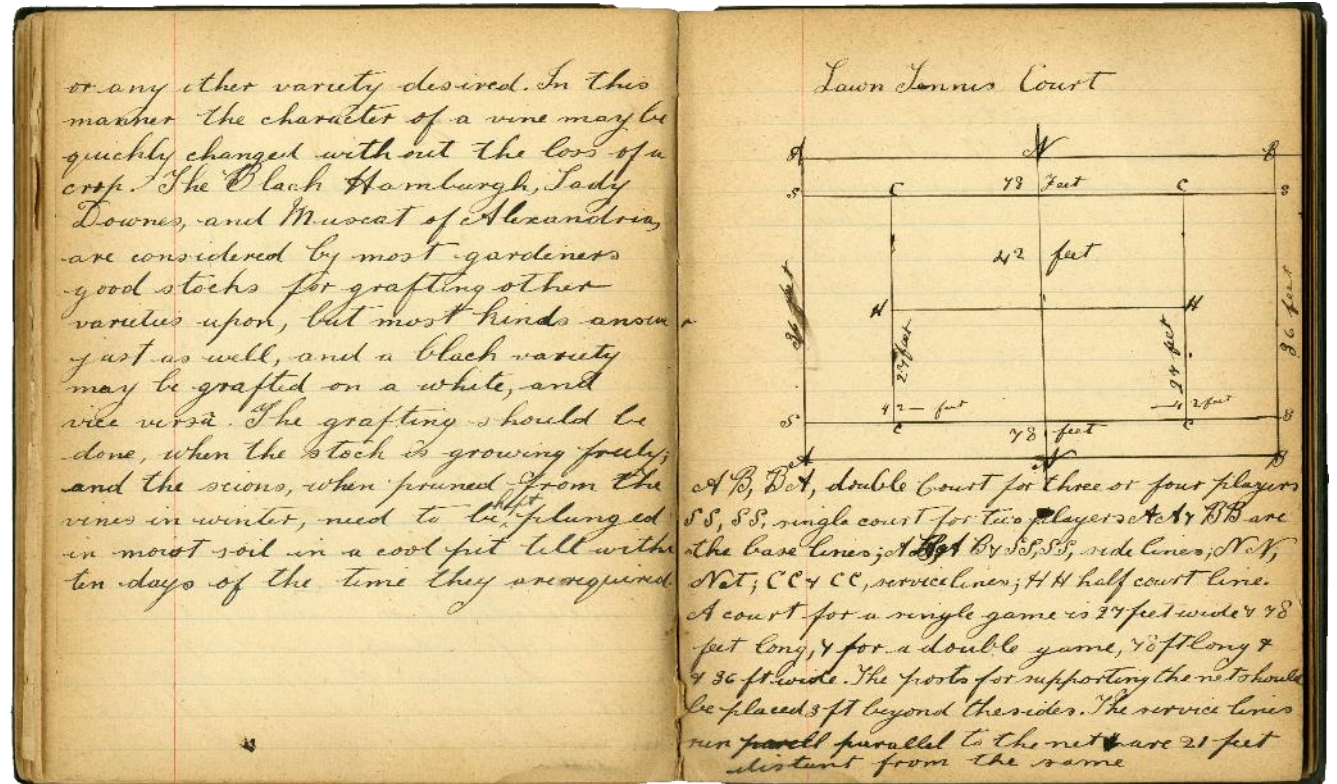 or any other variety desired. In this
manner the character of a vine may be
quickly changed without the loss of a
crop. The Black Hamburgh, Lady
Downes, and Muscat of Alexandria,
are considered by most gardiners
good stocks for grafting other
varieties upon, but most kinds answer
just as well, and a black variety
may be grafted on a white, and
vice versâ. The grafting should be
done, when the stock is growing freely;
and the scions, when pruned from the
vines in winter, need to be kept plunged
in moist soil in a cool pit till within
ten days of the time they are required.
Lawn Tennis Court
A N B
S C 78 Feet C S
42 feet
36 feet
H H
36 feet
27 feet
27 feet
42 feet
42 feet
S C C S
78 feet
A N B
A B, B A, double Court for three or four players
SS, SS, single court for two players AA & BB are
the base lines; A B & SS, SS, side lines; N N,
Net; CC & CC, service lines; HH half court line.
A court for a single game is 27 feet wide & 78
feet long, & for a double game, 78 ft long &
& 36 ft wide. The posts for supporting the net should
be placed 3 ft beyond the sides. The service lines
run parallel to the net & are 21 feet
distant from the same